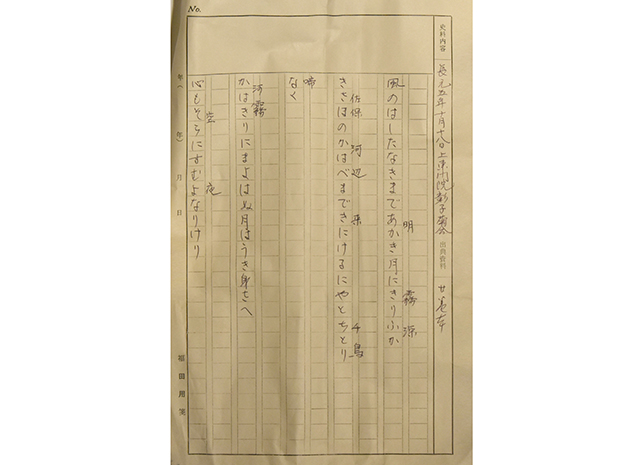 No.
史料内容
長元五年十月十八日上東門院彰子菊合
出典資料
廿巻本
風のはしたなきまであかき月にきりふか
明 霧 深
きさほのかはべまできにけるにやとちとり
佐保 河辺 来 千鳥
なく
啼
かはきりにまよはぬ月はうき身さへ
河霧
心もそらにすむよなりけり
空 夜
年( 年) 月 日